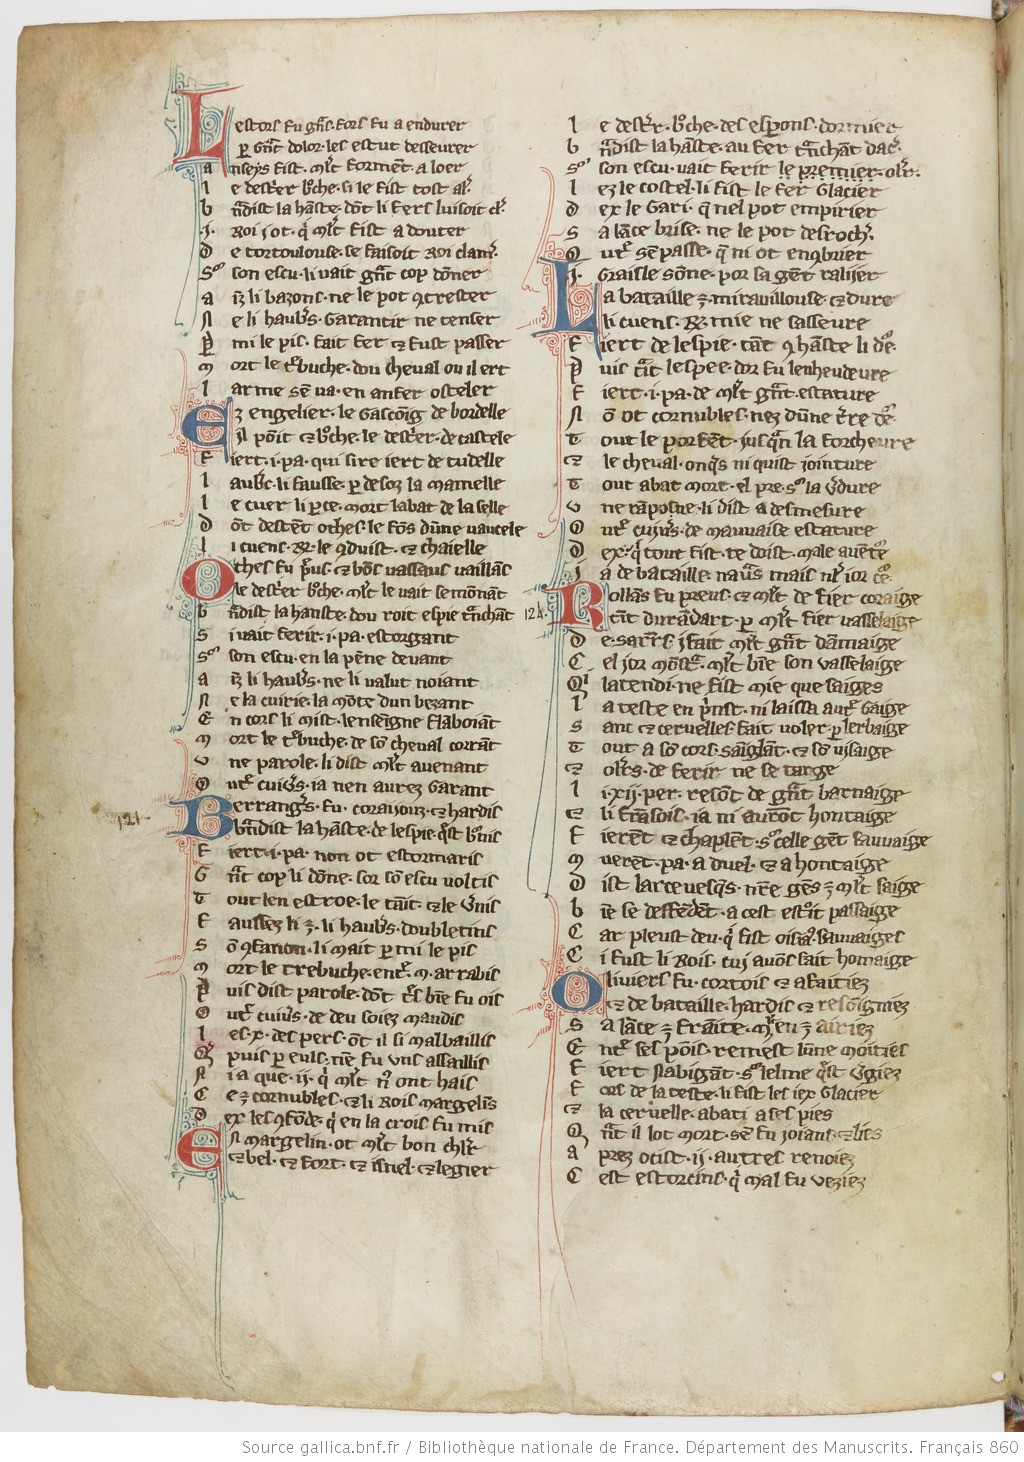 Lestors fu gñs. fors fu a endurer
ꝑ gñt dolor. les estut desseurer
anseys fist. ml't forment. a loer
le destr̃er broche. si le fist tost al'.
brãdist la hãste. dõt li fers luisoit cl'.
.j. Roi jot. q̃ ml't fist a douter
de tortoulouse. se faisoit roi clam'.
Sor son escu. li vait gñt cop dõner
ainz li bazons. ne le pot 9trester
Ne li haub's. garantir ne tenser
Par mi le pis. fait fer ⁊ fust passer
mort le t'buche. dou cheval ou il ert
larme sẽ va. en anfer osteler
Ez engelier. le gascõig de bordelle
Il põit ⁊ broche. le destr'. de castele
fiert. i. pa. qui sire iert de tudelle
laub'c. li fausse. ꝑ desoz la mamelle
le cuer li ꝑce. mort labat de la selle
dõt destẽt othes. le fõs dũne vaucele
li cuens. R. le 9duist. ⁊ chaielle
Othes fu p'us. ⁊ bõs vassaus vaillãs
le destr'. broche. ml't le vait semõnãt
brãdist la hanste. dou roit espie trãchant
si vait ferir. i. pa. estorgant
Sor son escu. en la pẽne devant
ainz li haub's. ne li valut noiant
Ne la cuirie. la mõte dun bezant
En cors li mist. lenseigne flaboiãt
mort le t'buche. de sõ cheval corrãt
vne parole. li dist ml't avenant
Out' cuiv's. ia nen aurez garant
Berrang's. fu. coraiouz. ⁊ hardis
brãdist la hãste. de lespie. q'st b'nis
fiert. i. pa. non ot estormaris
Gñt cop li dõne. sor sõ escu voltis
Tout len estroe. le taĩt. ⁊ le v'nis
faussez li ē. li haub's. doubletins
Sõ 9fanon. li mait ꝑ mi le pis
mort le trebuche. ent'. m. arrabis
Puis dist parole. dõt t's bie fu ois
Out' cuiv's. de deu soiez maudis
les. x. des pers. õt il si malbaillis
Q̃ puis ꝑ euls. nẽ fu vns assaillis
Nia que. ij. q̃ ml't nõ ont hais
Cez cornubles. ⁊ li rois margelĩs
Dex les 9fõde. q̃ en la crois fu mis
En margelin. ot ml't bon chl'r
⁊ bel. ⁊ fort. ⁊ isnel. ⁊ legier
le destr'. broche. des esperons. dormier
brãdist la hãste. au fer trãchant dac'.
Sor son escu. vait ferir le premier. ol'r.
lez le costel. li fist le fer glacier
dex le gari. q̃ nel pot empirier
Sa lãce brise. ne le pot desroch'.
Out' sẽ passe. q̃ ni ot enc9brier
.j. Graisle sõne. por sa gẽt ralijer
La bataille ē. miravillouse. ⁊ dure
li cuens. R. mie ne sasseure
Fiert de lespie. tãt 9 hãste li d'e.
Puis trãit lespee. dor fu lenheudeure
Fiert. i. pa. de ml't gñt. estature
Nõ ot cornubles. nez dũne t're d'e.
Tout le porfẽt. jusqñ la forcheure
⁊ le cheval. onq's ni quist jointure
Tout abat mort. el pre. sor la v'dure
Vne rãposne. li dist a desmesure
Out' cuiv's. de mauvaise estature
Dex. q̃ tout fist. te doist. male avẽt'e
Ja de bataille. nav's mais nl' ior c'e.
Rollãs fu preus. ⁊ ml't de fier coraige
124.
Tiẽt durãdart. ꝑ ml't fier vasselaige
De. sarr's jfait ml't gñt dãmaige
Cel jor mõst'. ml't biẽ son vasselaige
Q'l latendi. ne fist mie que saiges
la teste en p'nst. ni laissa aut' gaige
Sanc ⁊ cervelles fait voler. ꝑ lerbaige
Tout a sõ cors. sãiglãt. ⁊ sõ visaige
⁊ ol'rs. de ferir ne se targe
li. xij. per. resõt de gñt barnaige
⁊ li frãsois. ia ni aurõt hontaige
fierẽt ⁊ chaplẽt. sor celle gẽt sauvaige
muerẽt. pa. a duel. ⁊ a hontaige
Dist larcevesq's. nr̃e gẽs ē ml't saige
biẽ se deffẽdẽt. a cest estoit passaige
Car pleust deu. q̃ fist oisia'. sauvaiges
Ci fust li rois. cuj avõs fait homaige
Oliviers fu. cortois ⁊ afaitiez
⁊ de bataille. hardis ⁊ resõigniez
Sa lãce ē fraite. ml't en ē airiez
Ent' ses põis. remest lũne moitiés
fiert nabigãt. sor lelme q'st v'giez
fors de la teste. li fist les iex glacier
⁊ la cervelle. abati a ses pies
Qãt il lot mort. sẽ fu joiant. ⁊ liés
Aprez ocist. ij. autres renoiez
Cest estorcins. q̃ mal fu veziez
Source gallica.bnf.fr / Bibliothèque nationale de France. Département des Manuscrits. Français 860